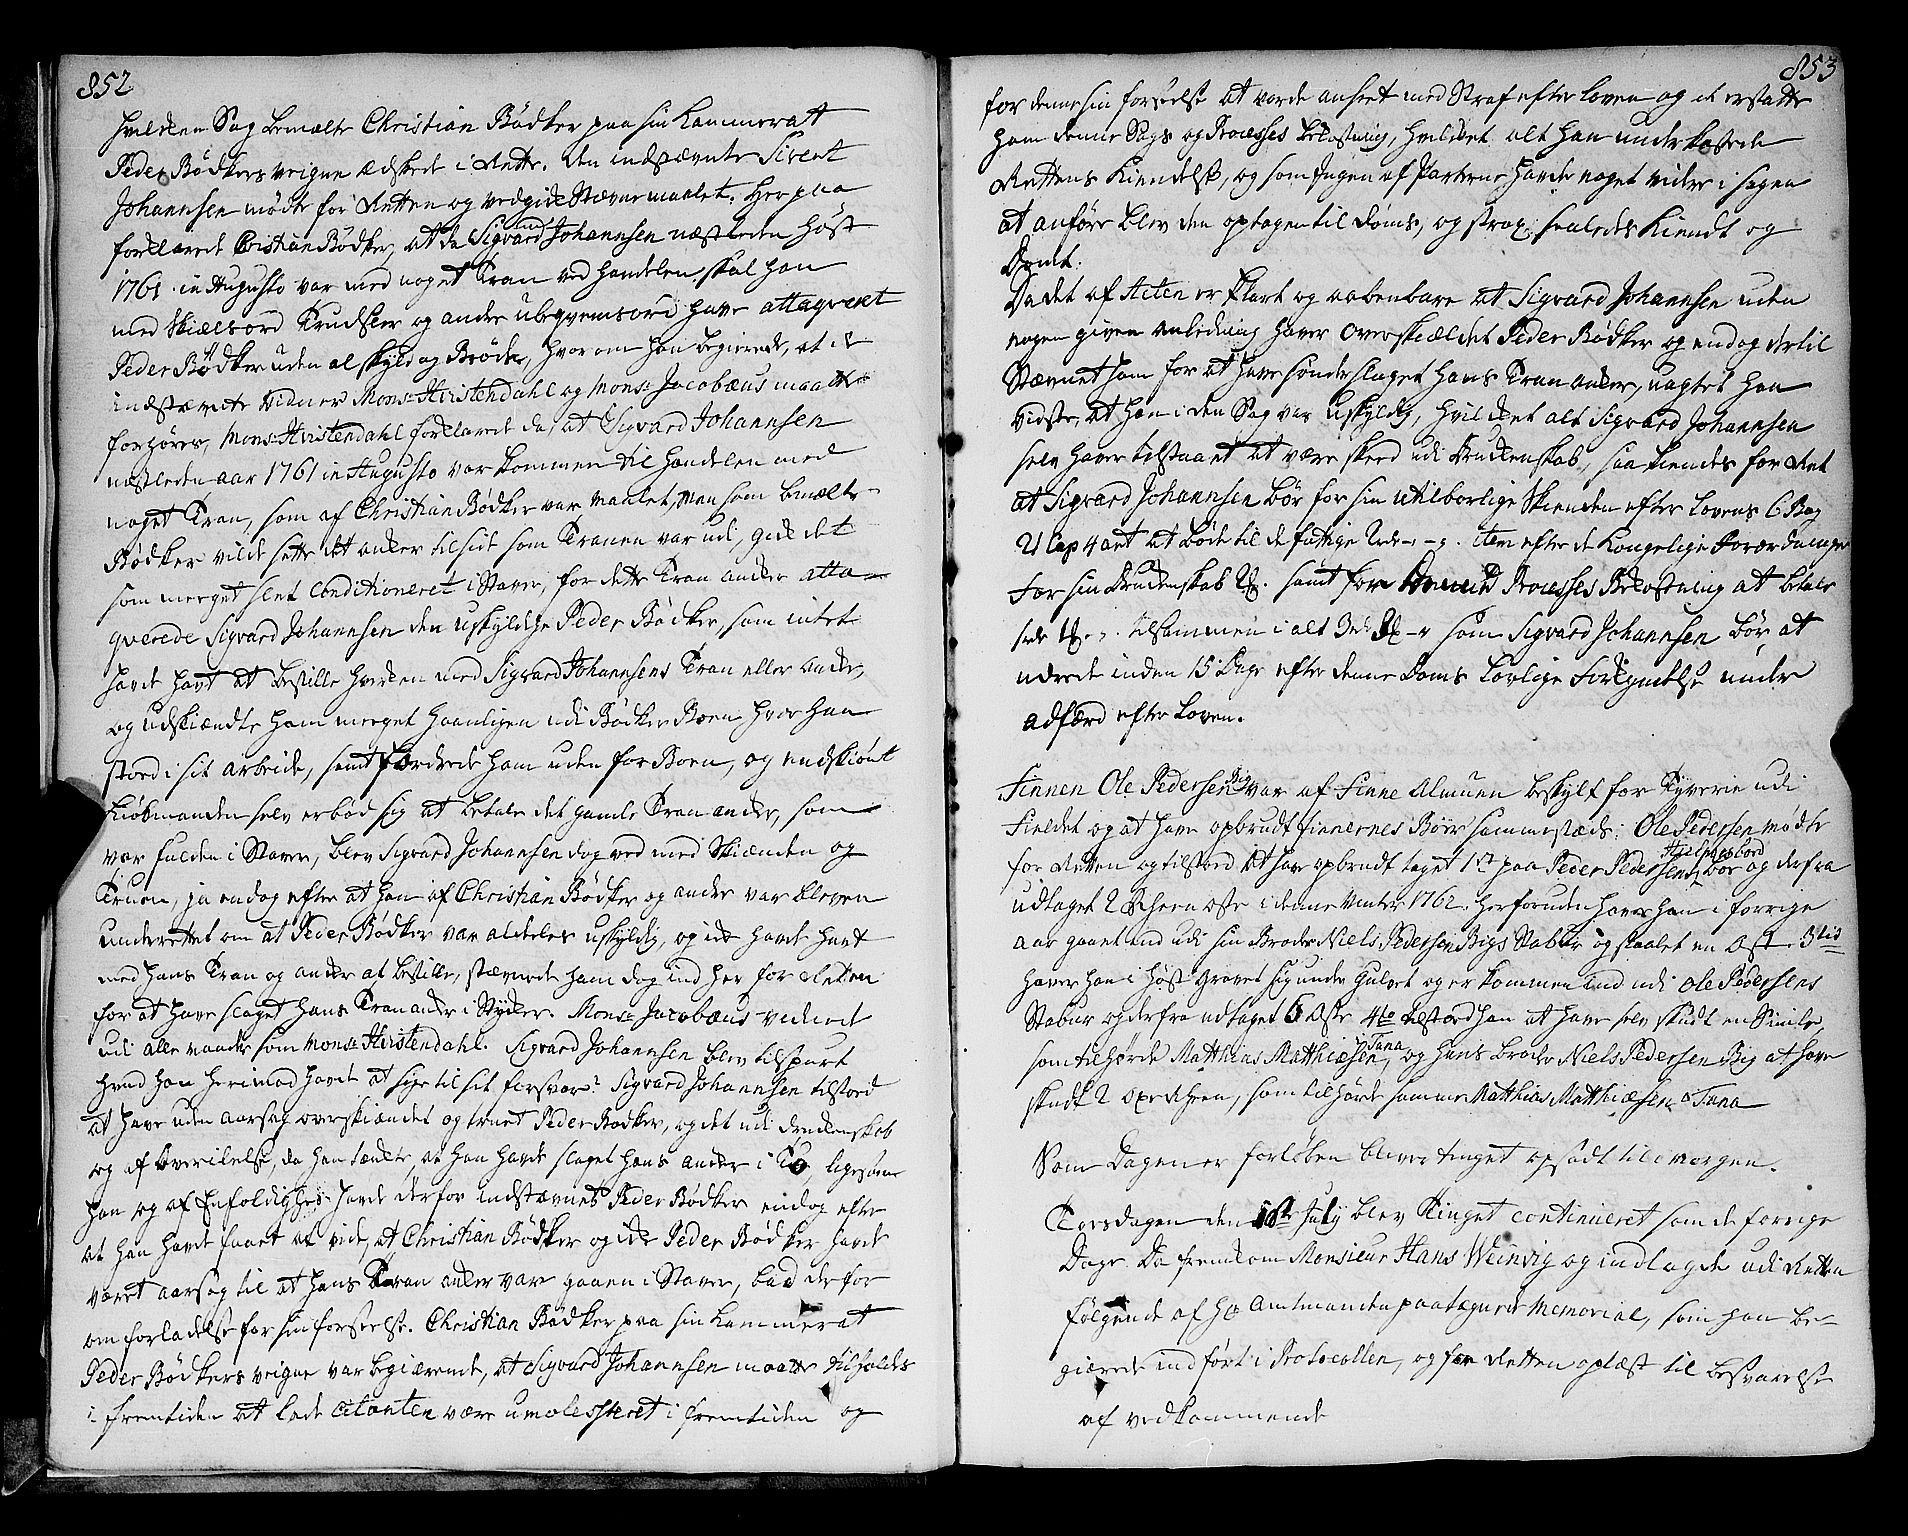 852
Hvilken Sag bemælte Christian Bødker paa sin Kammeratt
Peder Bødkers veigne ædskede i Rette. Den indstævnte Sivert
Johannsen mødte for Retten og vedgick Stævnemaalet. Herpaa
forklarede Cristian Bødker, at da Sigvard Johannsen næstleden Høst
1761 in Augusto var med noget Tran ved Handelen skal han
med Skiælsord Trudsler og andre ubeqvemsord have attaqveret
Peder Bødker uden al skyld og Brøde, hvorom han begierede, at de
indstævnte Vidner Mons: Hirstendahl og Mons: Jacobæus maatte
forhøres, Mons: Hirstendahl forklarede da, at Sigvard Johannsen
næstleden aar 1761 in Augusto var kommen til Handelen med
noget Tran, som af Christian Bødker var maalet, Men som bemælte
Bødker vilde sette det anker tilside som Tranen var udi, gick det
som merget slet conditioneret i Staver, for dette Tran anker atta-
qverede Sigvard Johannsen den uskyldige Peder Bødker, som intet
hafde havt at bestille hverken med Sigvard Johannsens Tran eller Anker,
og udskiændte ham merget haanligen udi Bødker Boen hvor han
stoed i sit arbeide, samt fordrede ham uden for Boen, og endskiønt
Kiøbmanden selv erbød sig at betale det gamle Tran anker, som
var falden i Staver, blev Sigvard Johannsen dog ved med Skiænden og
Truen, ja endog efter at han af Christian Bødker og andre var bleven
underrettet om at Peder Bødker var aldeles uskyldig, og icke hafde havt
med hans Tran og anker at bestille, stævnede ham dog ind her for Retten
for at have slaget hans Tran anker i Stycker. Mons: Jacobæus vidnede
udi alle maader som Mons: Hirstendahl. Sigvard Johannsen blev tilspurt
hvad han herimod hafde at sige til sit forsvar? Sigvard Johannsen tilstoed
at have uden aarsag overskiændet og truet Peder Bødker, og det udi Druckenskab
og af Overilelse, da han tænckte, at han havde slaget hans ancker i Tø, ligesom
han og af Enfoldighed havde derfor indstævnet Peder Bødker endog efter
at han havde faaet at vide, at Christian Bødker og icke Peder Bødker havde
været aarsag til at hans Tran ancker var gaaen i Staver, bad derfor
om forladelse for sin forseelse. Christian Bødker paa sin Kammerat
Peder Bødkers veigne var begiærende, at Sigvard Johannsen maatte tilholdes
i fremtiden at lade Citanten være umolesteret i fremtiden og
853
for denne sin forseelse at vorde anseet med Straf efter Loven og at erstatte
ham denne Sags og Processes bekostning, hvilcket alt han underkastede
Rettens Kiendelse, og som Ingen af Parterne hafde noget videre i sagen
at anføre blev den optagen til Doms, og strax saaledes Kiendt og
Dømt.
Da det af Acten er klart og aabenbare at Sigvard Johannsen uden
nogen given anledning haver overskiældet Peder Bødker og endog dertil
Stævnet ham for at have sønderslaget hans Tran ancker, uagtet han
vidste, at han i den Sag var uskyldig, hvilcket alt Sigvard Johannsen
selv haver tilstaaet at være skeed udi Druckenskab, saa kiendes for Ret
at Sigvard Johannsen bør for sin utilbørlige Skienden efter Lovens 6 Bog
21 Cap 4 art at bøde til de fattige item efter de Kongelige Forordninger
for sin Druckenskab samt for Processes Bekostning at betale
tilsammen i alt som Sigvard Johannsen bør at
udrede inden 15 Dage efter denne Doms Lovlige Forkyndelse under
adfærd efter Loven.
Finnen Ole Pedersen Big var af Finne Almuen beskylt for Tyverie udi
Fieldet og at have opbrudt finnernes Boer sammestæds; Ole Pedersen mødte
for Retten og tilstoed at have opbrudt taget 1st paa Peder Pedersens Bør og derfra
udtaget 2 Rheen oste i denne Vinter 1762. Herforuden haver han i forrige
aar gaaet ind udi sin Broder Niels Pedersen Bigs Stabur og staalet en Ost. 3tid
haver han i Høst gravet sig under Gulvet og er kommen ind udi Ole Pedersens
Stabur og derfra udtaget 6 Oste 4to tilstoed han at have selv skudt en Simle,
som tilhørte Matthias Matthiæsen Tana, og hans broder Niels Pedersen Big at have
skudt 2 Oxe Rheen, som tilhørde samme Matthias Matthiæsen Tana
Som Dagen er forløben bliver tinget opsadt til i morgen.
Torsdagen den July blev Tinget continueret som de forrige
Dage. Da fremkom Monsieur Hans Weinvig og indlagde udi Retten
følgende af Hr Amtmanden paategnede Memorial, som han be-
gierede indført i Protocollen, og for Retten oplæst til besvarelse
af vedkommende